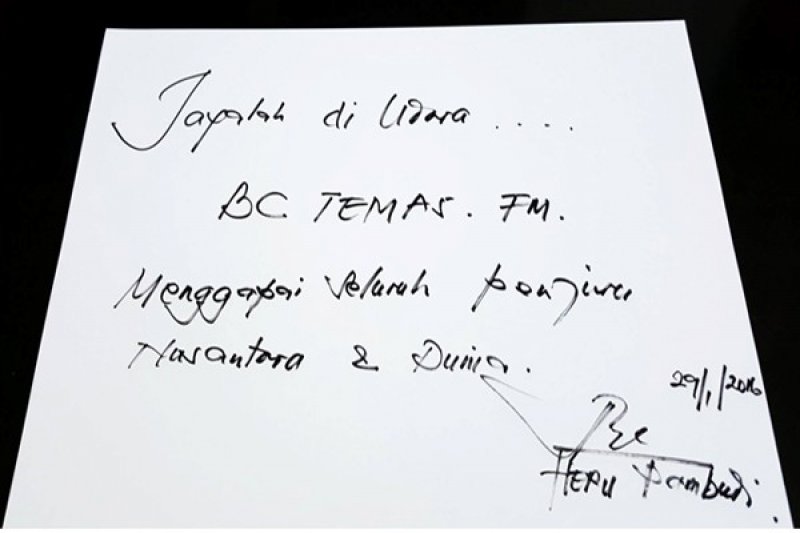 Jayalah di Udara ....
BC TEMAS. FM.
Menggapai Seluruh penjuru
Nusantara & Dunia.
29/1/2016
HERU Pambudi.